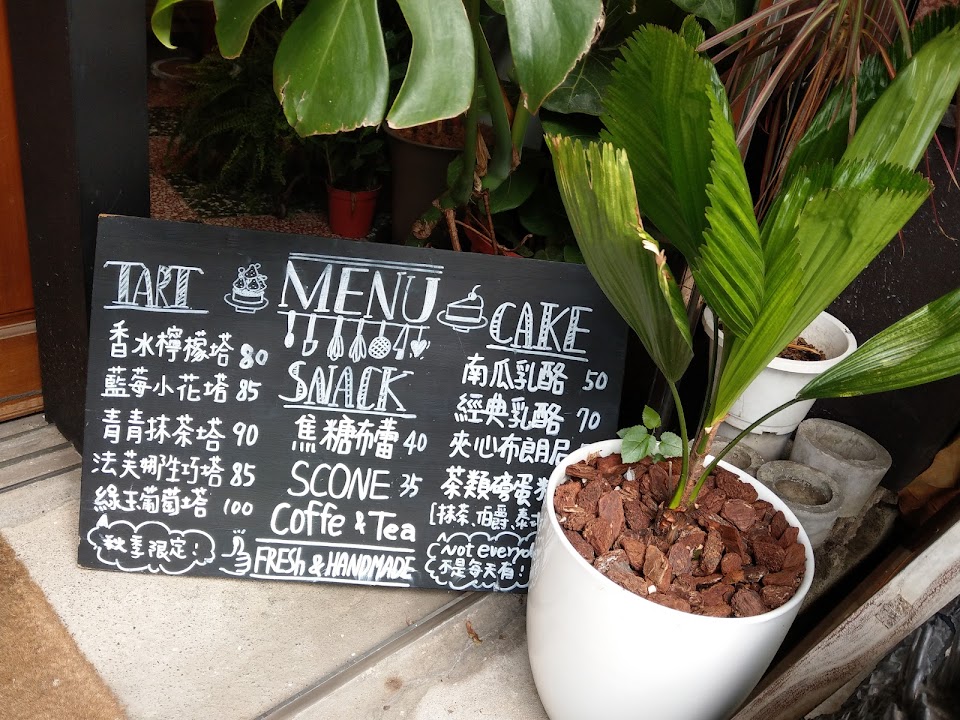 TART
香水檸檬塔 80
藍莓小花塔 85
青青抹茶塔 90
法芙娜生巧塔 85
綠玉葡萄塔 100
秋季限定!
MENU
SNACK
焦糖布蕾 40
SCONE 35
Coffe & Tea
FRESH & HANDMADE
CAKE
南瓜乳酪 50
經典乳酪 70
夾心布朗尼
茶類磅蛋
[抹茶、伯爵、泰
Not everyd
不是每天有!